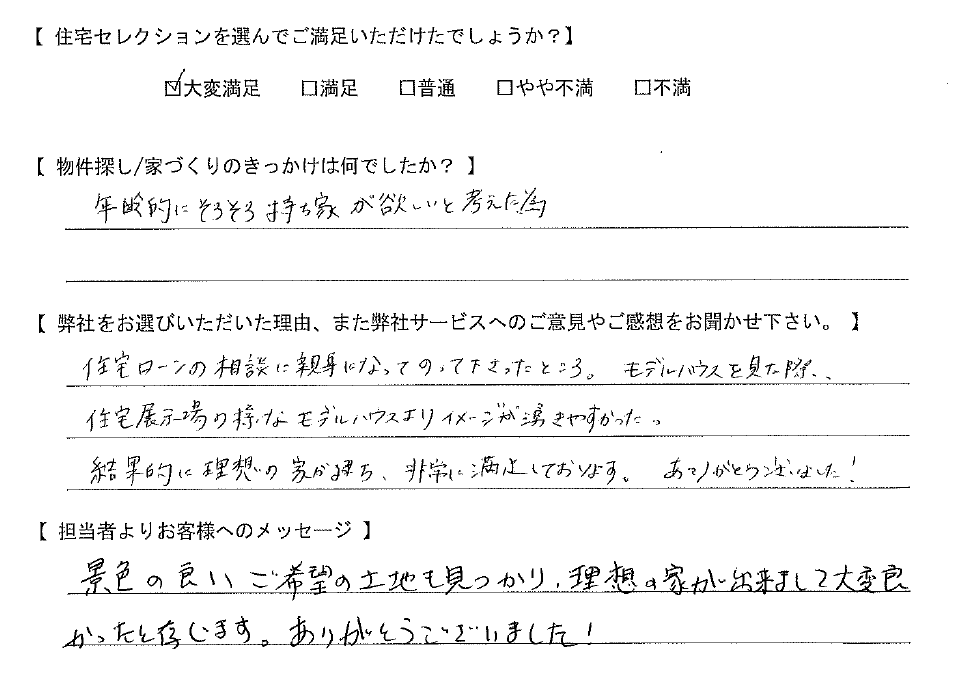 【 住宅セレクションを選んでご満足いただけたでしょうか？】
☑大変満足 □満足 □普通 □やや不満 □不満
【 物件探し/家づくりのきっかけは何でしたか？ 】
年齢的にそろそろ持ち家が欲しいと考えた為
【 弊社をお選びいただいた理由、また弊社サービスへのご意見やご感想をお聞かせ下さい。 】
住宅ローンの相談に親身になってのって下さったところ。 モデルハウスを見た際、
住宅展示場の様なモデルハウスよりイメージが湧きやすかった。
結果的に理想の家が建ち、非常に満足しております。 ありがとうございました！
【 担当者よりお客様へのメッセージ 】
景色の良いご希望の土地も見つかり、理想の家が出来まして大変良
かったと存じます。ありがとうございました！